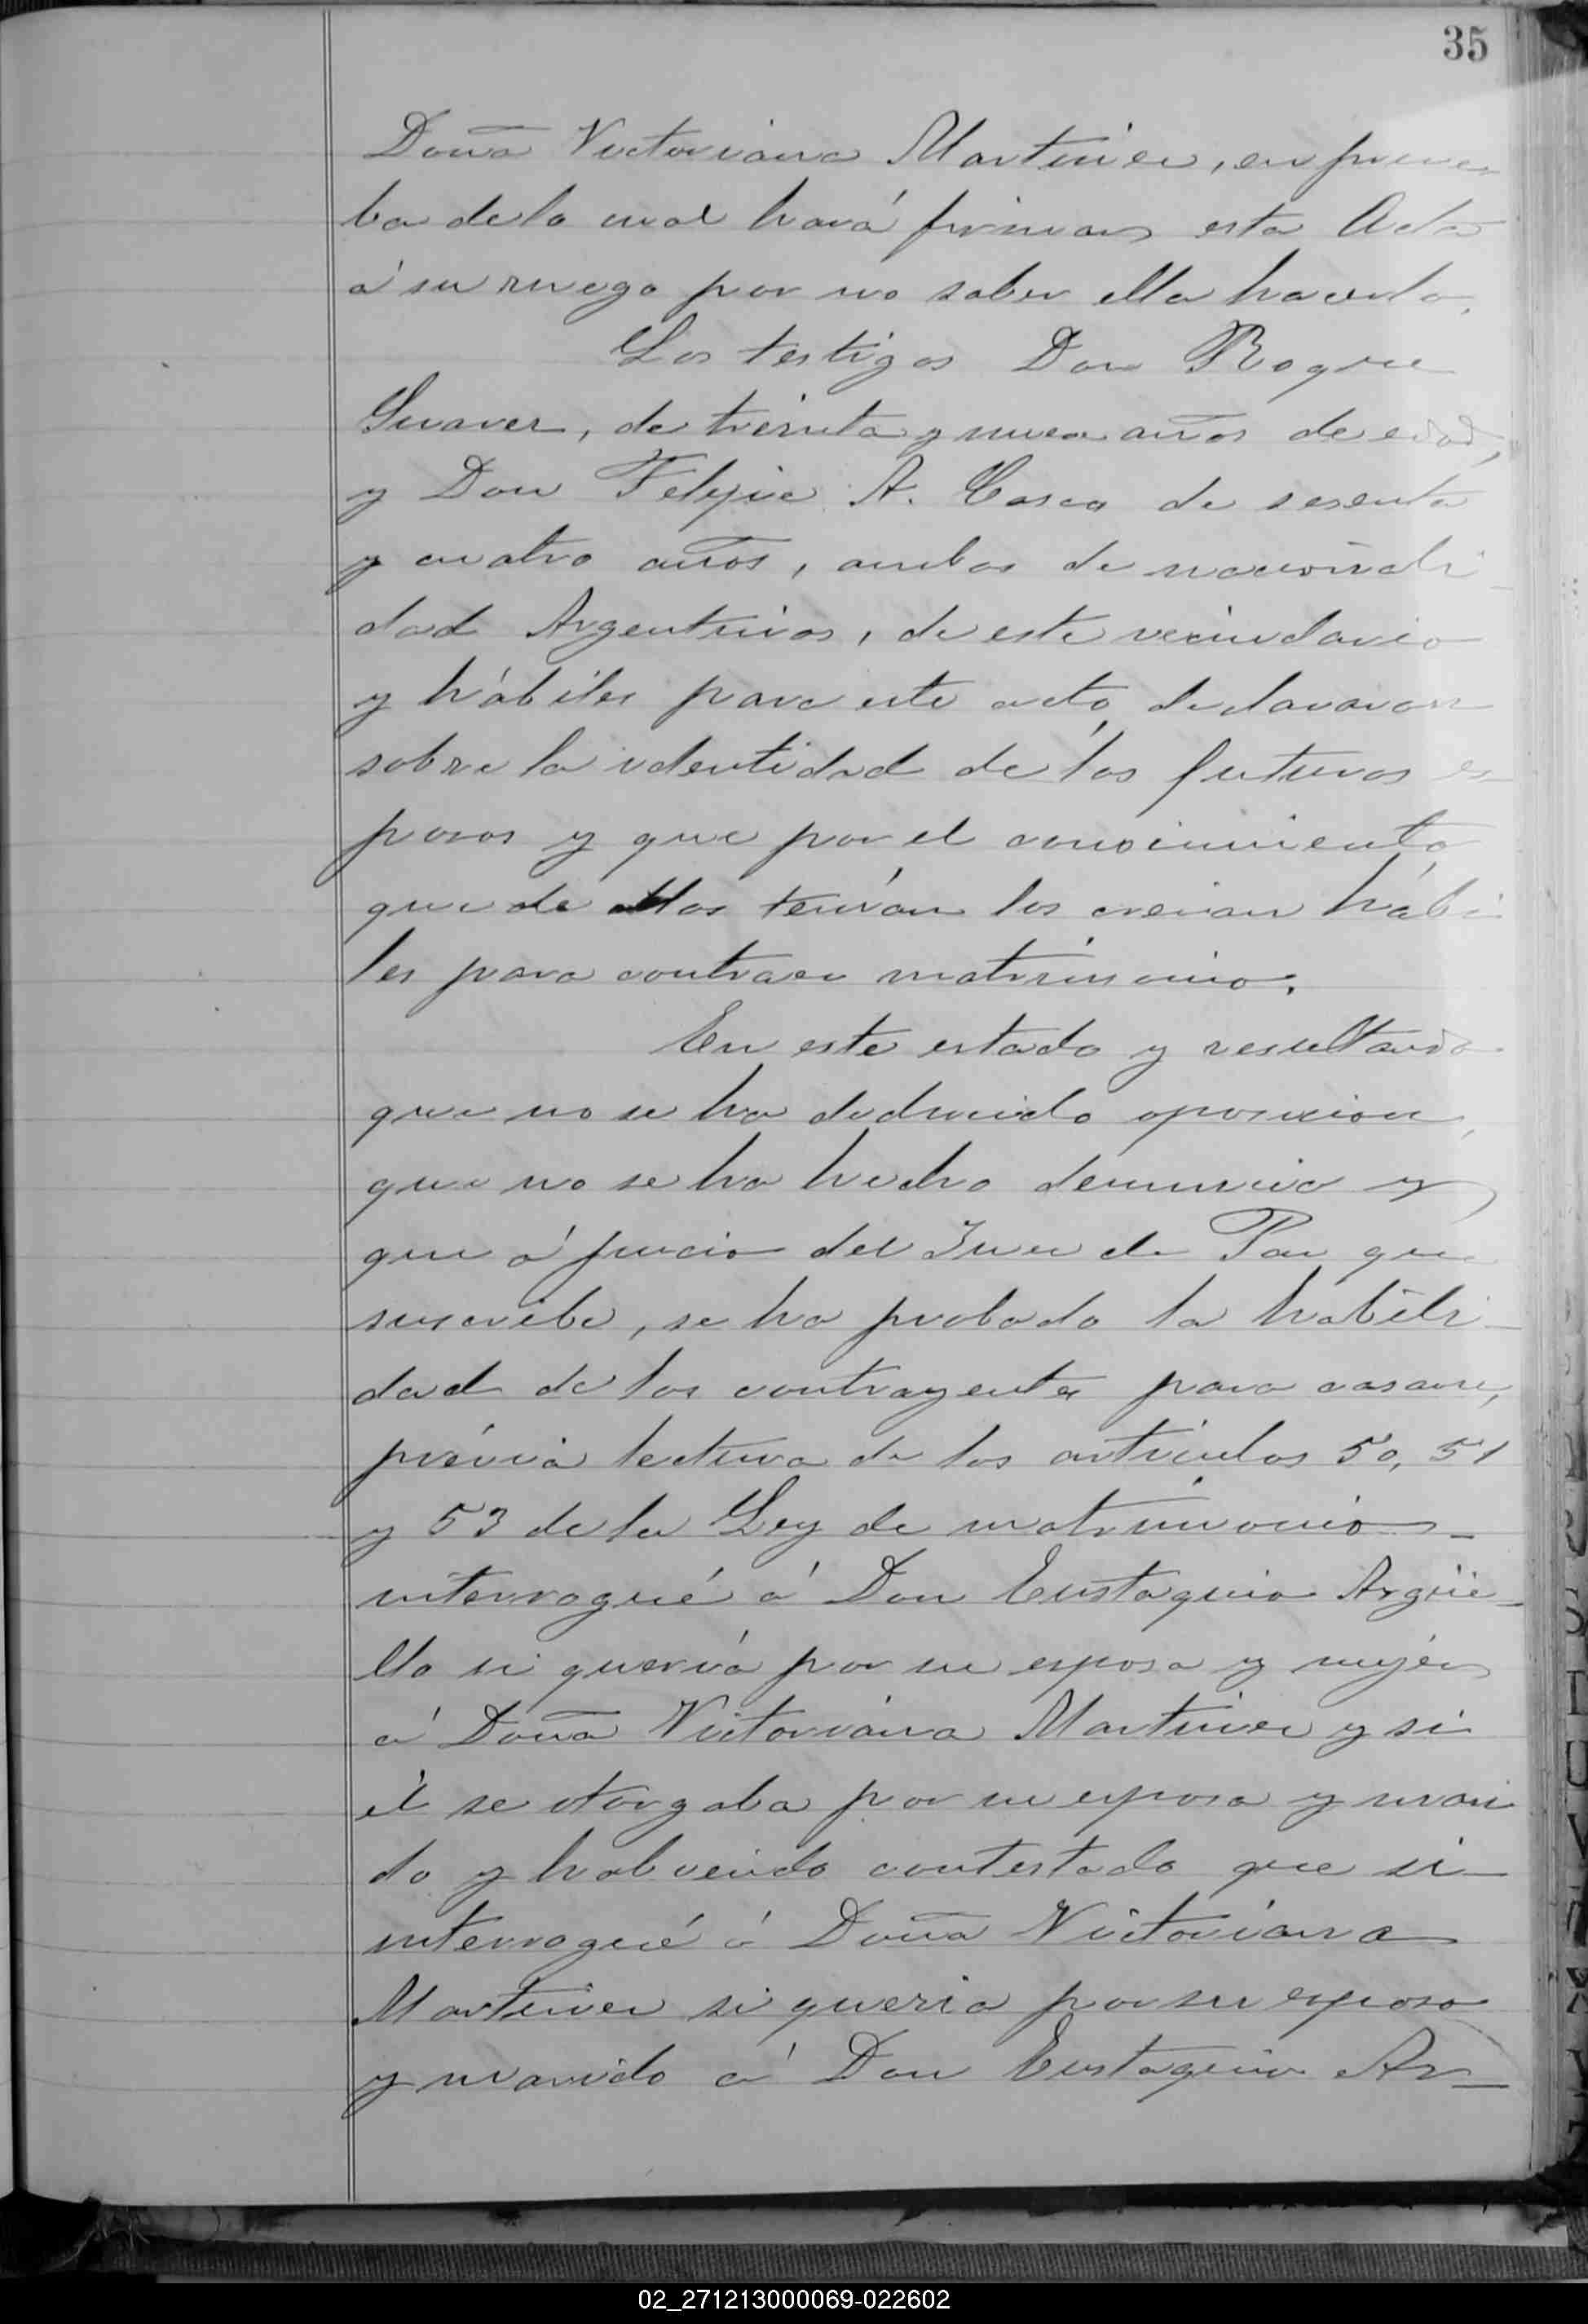 35
Doña Victoriana Martinez, en prue-
ba de lo cual hará firmar esta Acta
á su ruego por no saber ella hacerlo.
Los testigos Don Roque
Suarez, de treinta y nueve años de edad,
y Don Felipe A. Casco de sesenta
y cuatro años, ambos de nacionali-
dad Argentinos, de este vecindario
y hábiles para este acto, declararon
sobre la identidad de los futuros es
posos y que por el conocimiento
que de ellos tenían los creian hábi-
les para contraer matrimonio.
En este estado y resultando
que no se ha deducido oposicion,
que no se ha hecho denuncia y
que á juicio del Juez de Paz que
suscribe, se ha probado la habili-
dad de los contrayentes para casarse,
prévia lectura de los artículos 50, 51
y 53 de la Ley de matrimonio-
interrogué á Don Eustaquio Argüe-
llo si quería por su esposa y mujer
á Doña Victoriana Martinez y si
él se otorgaba por su esposo y mari
do y habiendo contestado que si-
interrogué á Doña Victoriana
Martinez si queria por su esposo
y marido á Don Eustaquio Ar-
02_271213000069-022602